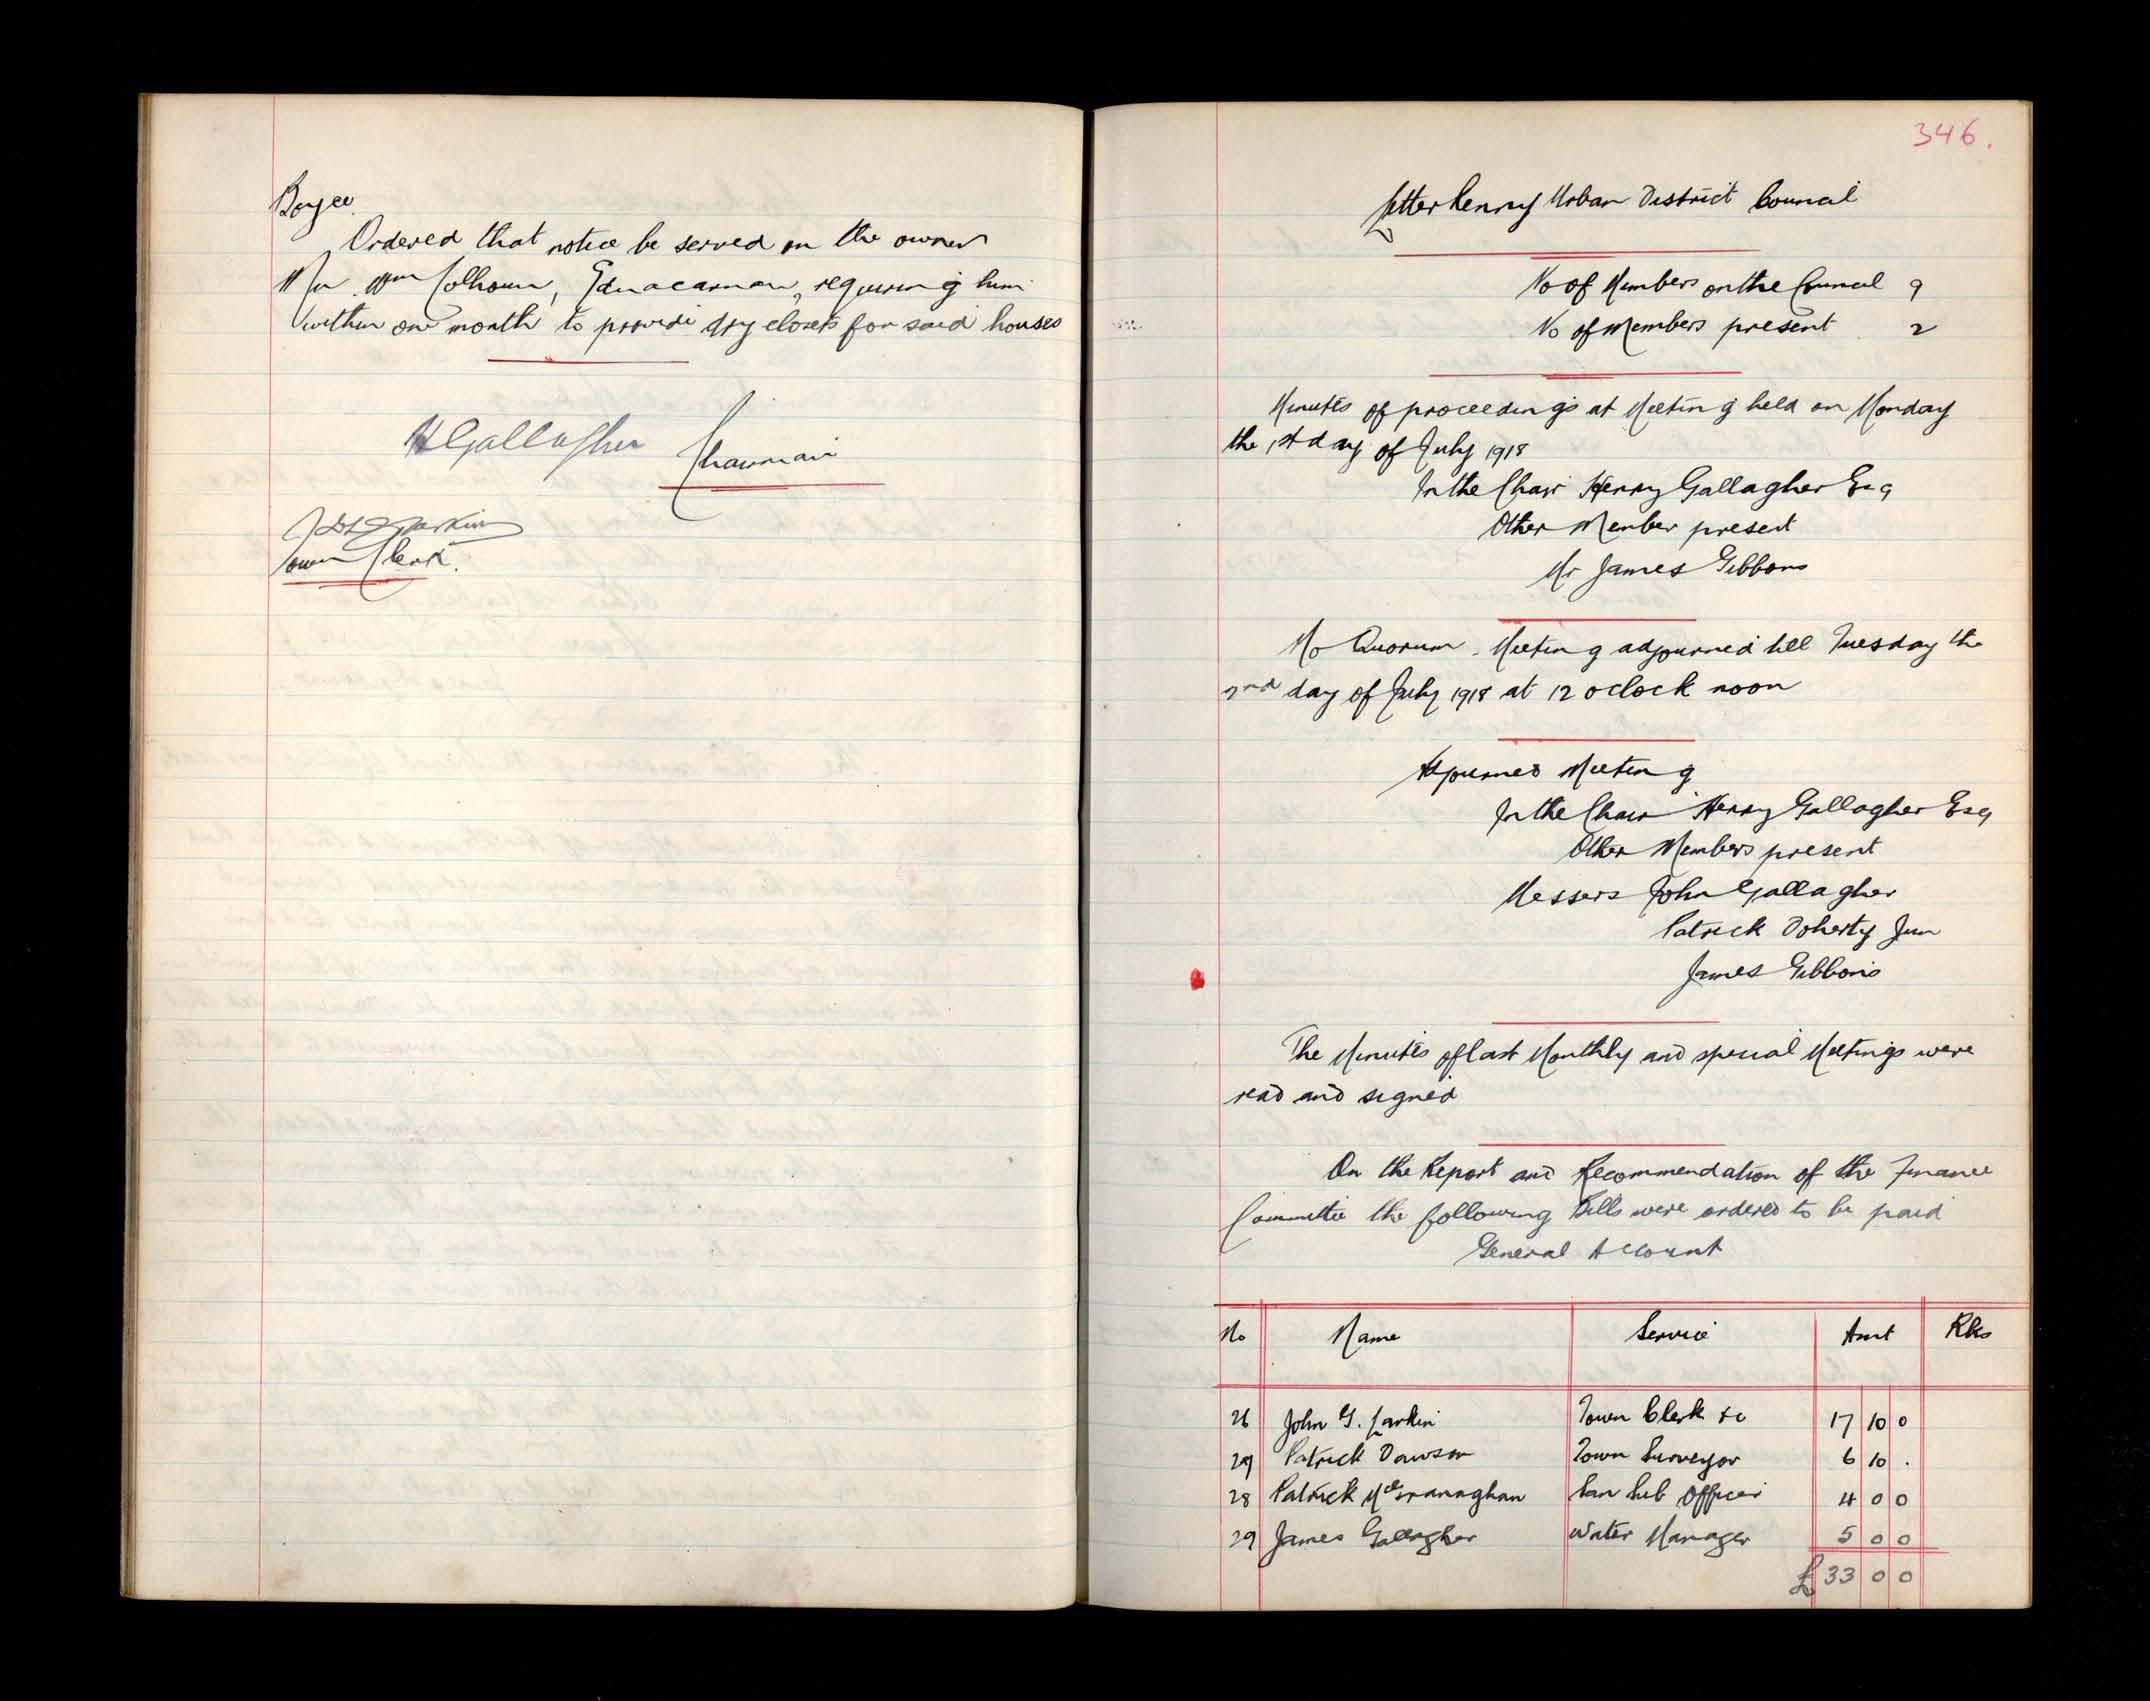 Boyce
Ordered that notice be served on the owner
Mr Wm Colhoun, Ednacarnan, requiring him
within one month to provide dry closets for said houses
H Gallagher Chairman
Larkin
Town Clerk.
346.
Letterkenny Urban District Council
No of Members on the Council 9
No of Members present 2
Minutes of proceedings at Meeting held on Monday
the 1st day of July 1918
In the Chair Henry Gallagher Esq
Other Member present
Mr James Gibbons
No Quorum. Meeting adjourned till Tuesday the
2nd day of July 1918 at 12 oclock noon
Adjourned Meeting
In the Chair Henry Gallagher Esq
Other Members present
Messers John Gallagher
Patrick Doherty Jun
James Gibbons
The Minutes of last Monthly and special Meetings were
read and signed
On the Report and Recommendation of the Finance
Committee the following Bills were ordered to be paid
General Account
No Name Service Amt Rks
26 John G. Larkin Town Clerk &c 17 10 0
27 Patrick Dawson Town Surveyor 6 10 .
28 Patrick McMonanaghan San Sub Officer 4 0 0
29 James Gallagher Water Manager 5 0 0
£ 33 0 0